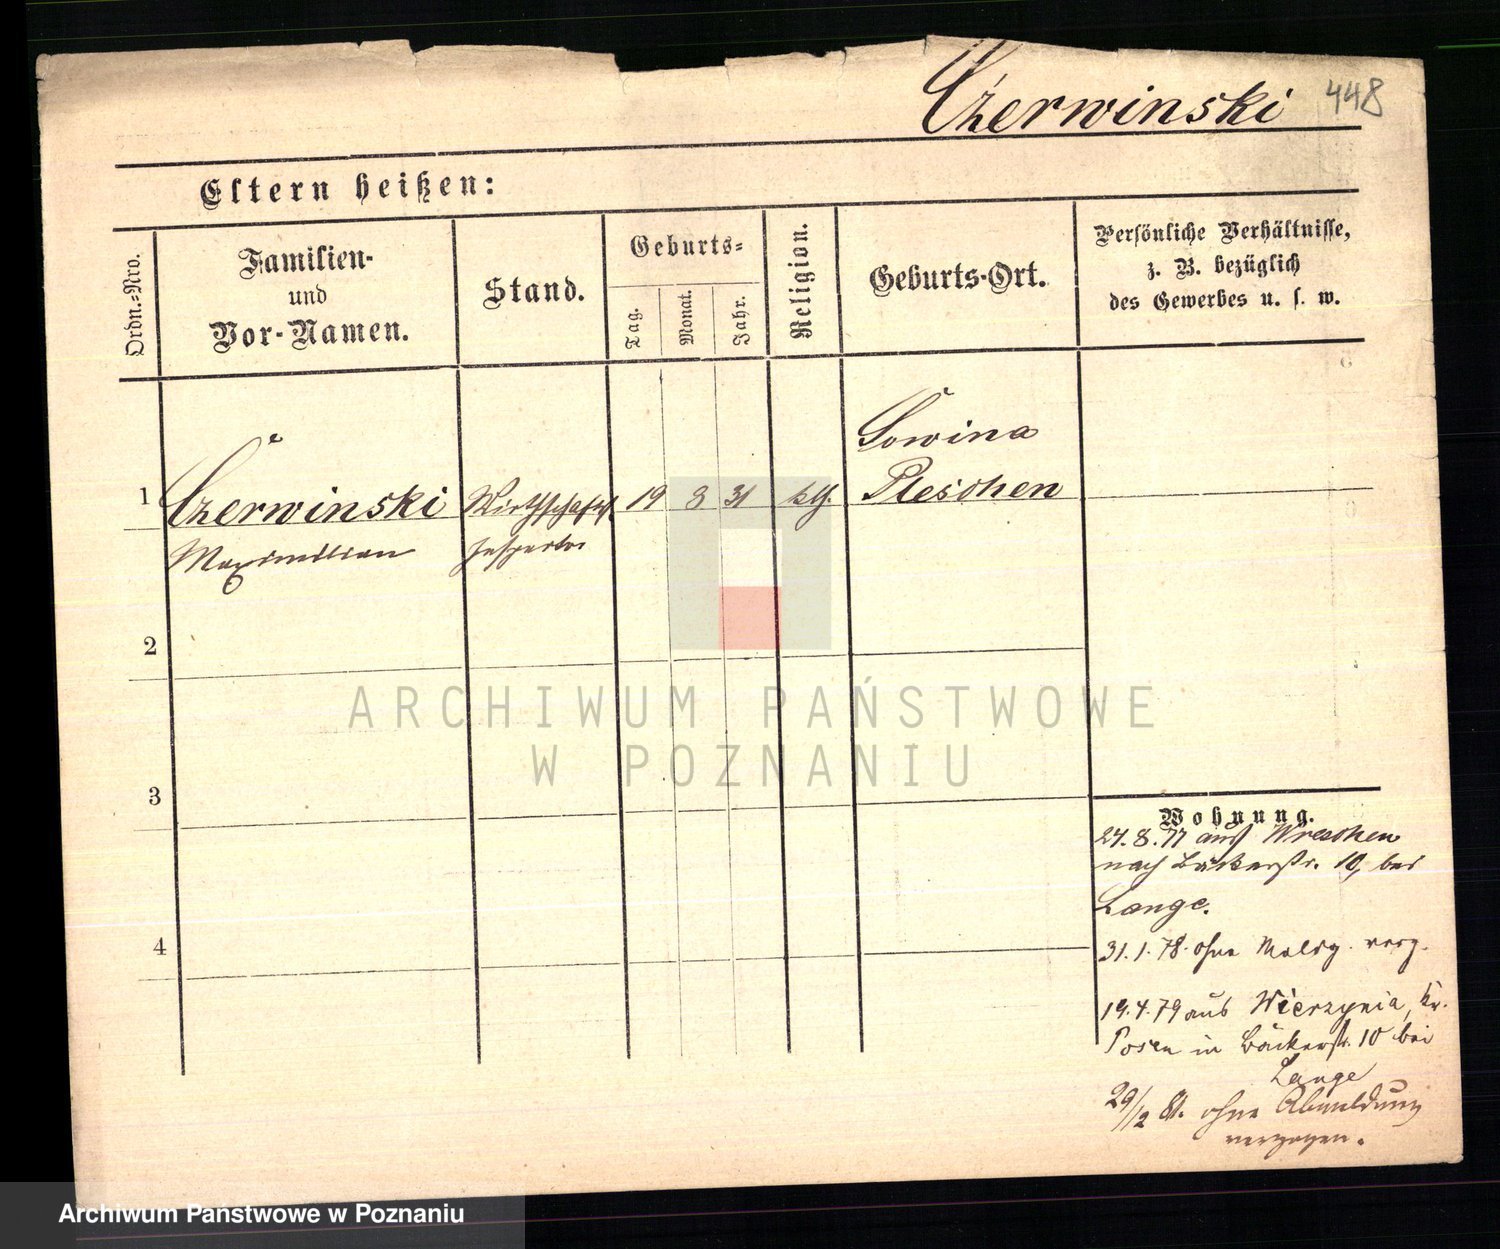 Czerwinski 448
Eltern heißen:
Ordn.=Nro.
Familien-
und
Vor-Namen.
Stand.
Geburts=
Tag.
Monat.
Jahr.
Religion.
Geburts-Ort.
Persönliche Verhältnisse,
z. B. bezüglich
des Gewerbes u. s. w.
1 Czerwinski
Maximilian
Wirthschafts
Inspector
19 8 31 kth.
Sowina
Pleschen
2
3
4
Wohnung.
27.8.77 aus Wreschen
nach Bäckerstr. 10, bei
Lange.
31.1.78. ohne Meldg. verz.
19.4.79 aus Wierzynia, Kr.
Posen in Bäckerstr. 10 bei
Lange
29/12 81. ohne Abmeldung
verzogen.
ARCHIWUM PAŃSTWOWE
W POZNANIU
Archiwum Państwowe w Poznaniu